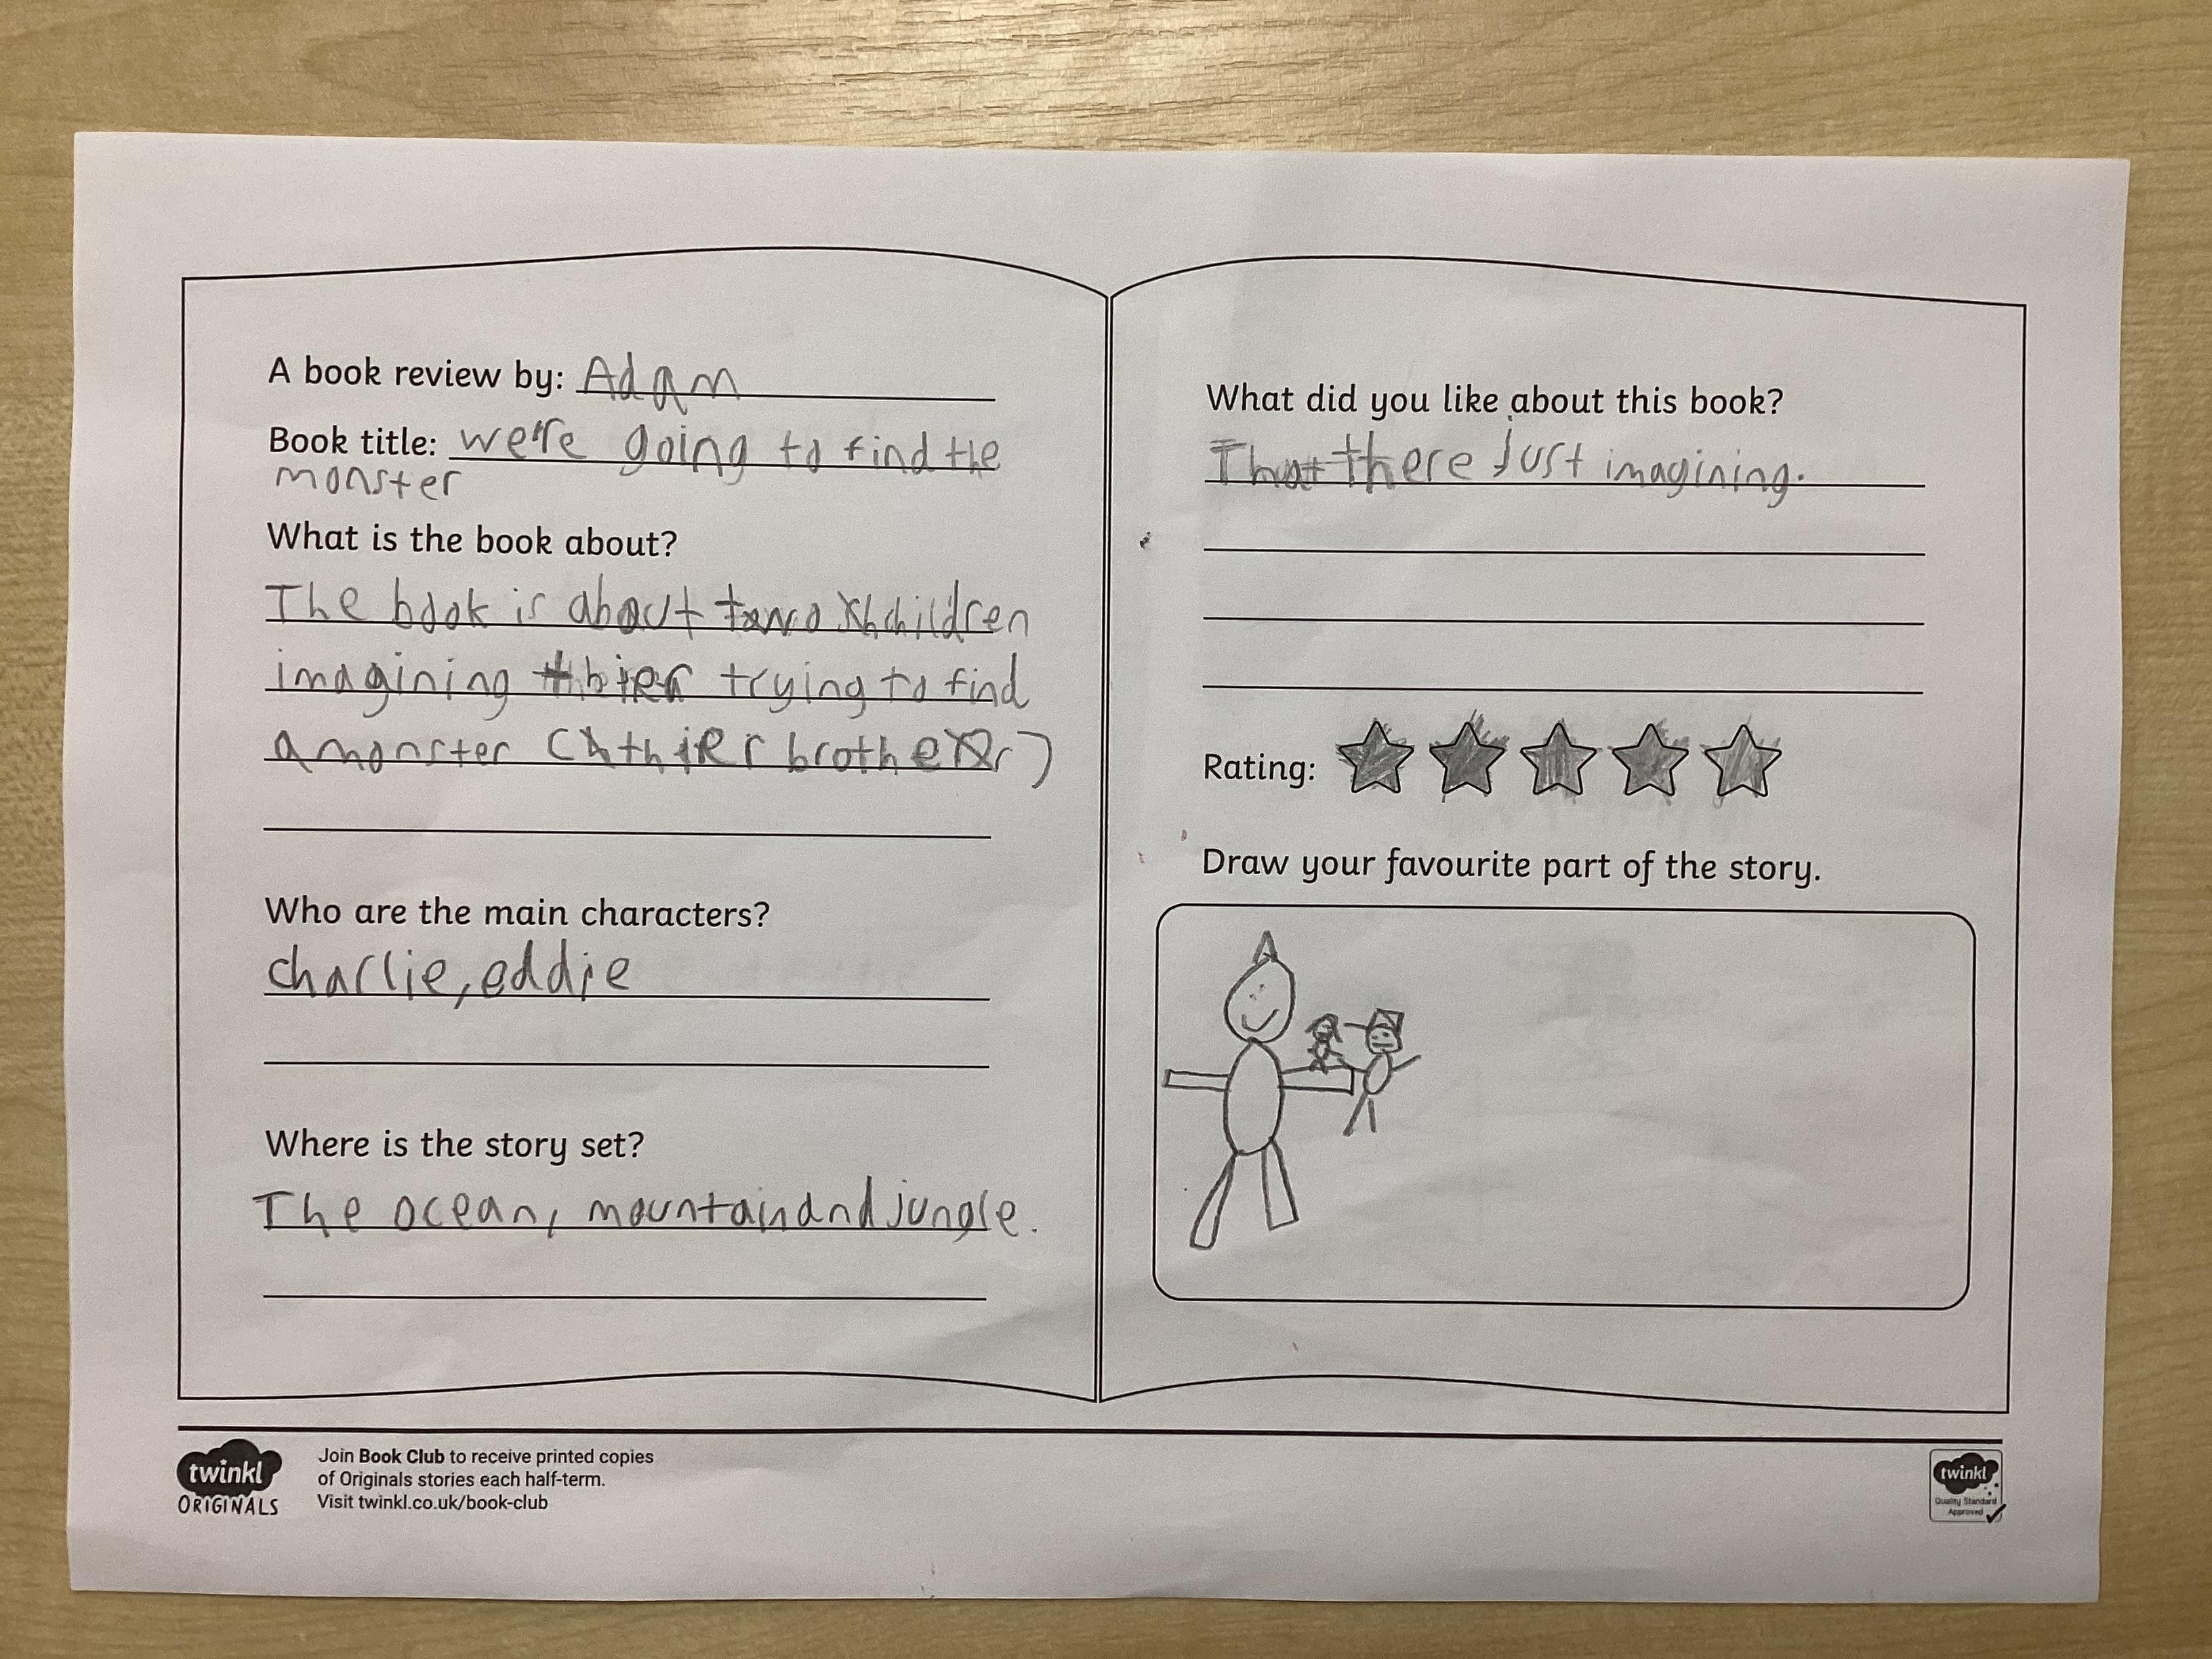 A book review by: Adam
Book title: we're going to find the
monster
What is the book about?
The book is about two children
imagining thier trying to find
a monster (thier brother)
Who are the main characters?
charlie, eddie
Where is the story set?
The ocean, mountain and jungle.
What did you like about this book?
That there just imagining.
Rating:
Draw your favourite part of the story.
twinkl
ORIGINALS
Join Book Club to receive printed copies
of Originals stories each half-term.
Visit twinkl.co.uk/book-club
twinkl
Quality Standard
Approved